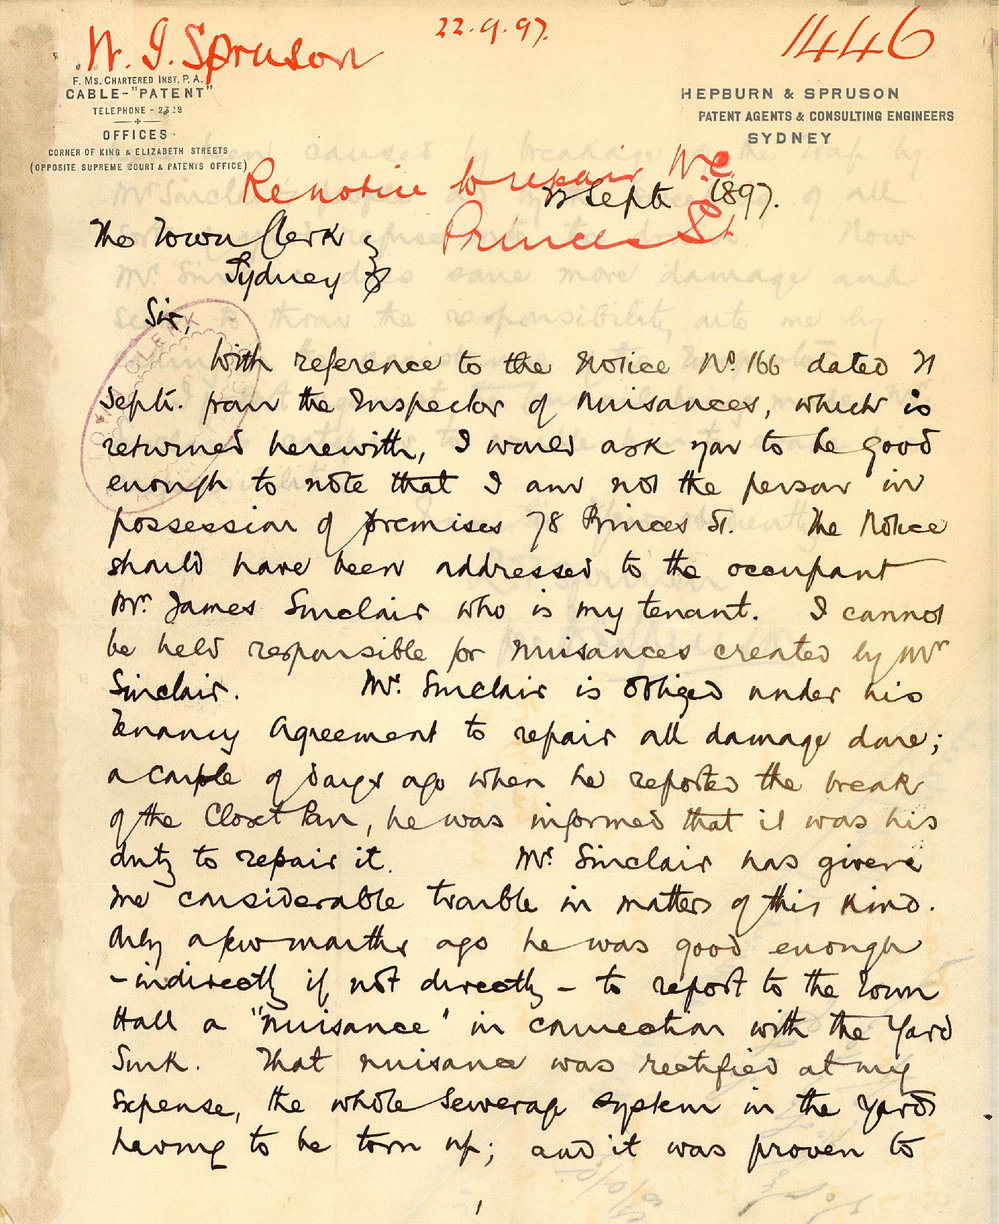 W. J. Spruson
22.9.97.
1446
F. MS. CHARTERED INST. P. A.
CABLE-"PATENT"
TELEPHONE -
OFFICES
CORNER OF KING & ELIZABETH STREETS
(OPPOSITE SUPREME COURT & PATENTS OFFICE)
HEPBURN & SPRUSON
PATENT AGENTS & CONSULTING ENGINEERS
SYDNEY
Re notice to repair W.C.
Princes St
Sept 1897.
The Town Clerk
Sydney
Sir,
With reference to the Notice No. 166 dated 21
Septr. from the Inspector of Nuisances, which is
returned herewith, I would ask you to be good
enough to note that I am not the person in
possession of premises 78 Princes St. The Notice
should have been addressed to the occupant
Mr. James Sinclair who is my tenant. I cannot
be held responsible for nuisances created by Mr
Sinclair. Mr. Sinclair is obliged under his
Tenancy Agreement to repair all damage done;
a couple of days ago when he reported the break
of the Closet Pan, he was informed that it was his
duty to repair it. Mr. Sinclair has given
me considerable trouble in matters of this kind.
Only a few months ago he was good enough
- indirectly if not directly - to report to the Town
Hall a "nuisance" in connection with the Yard
Sink. That nuisance was rectified at my
expense, the whole sewerage system in the yard
having to be torn up; and it was proven to
1